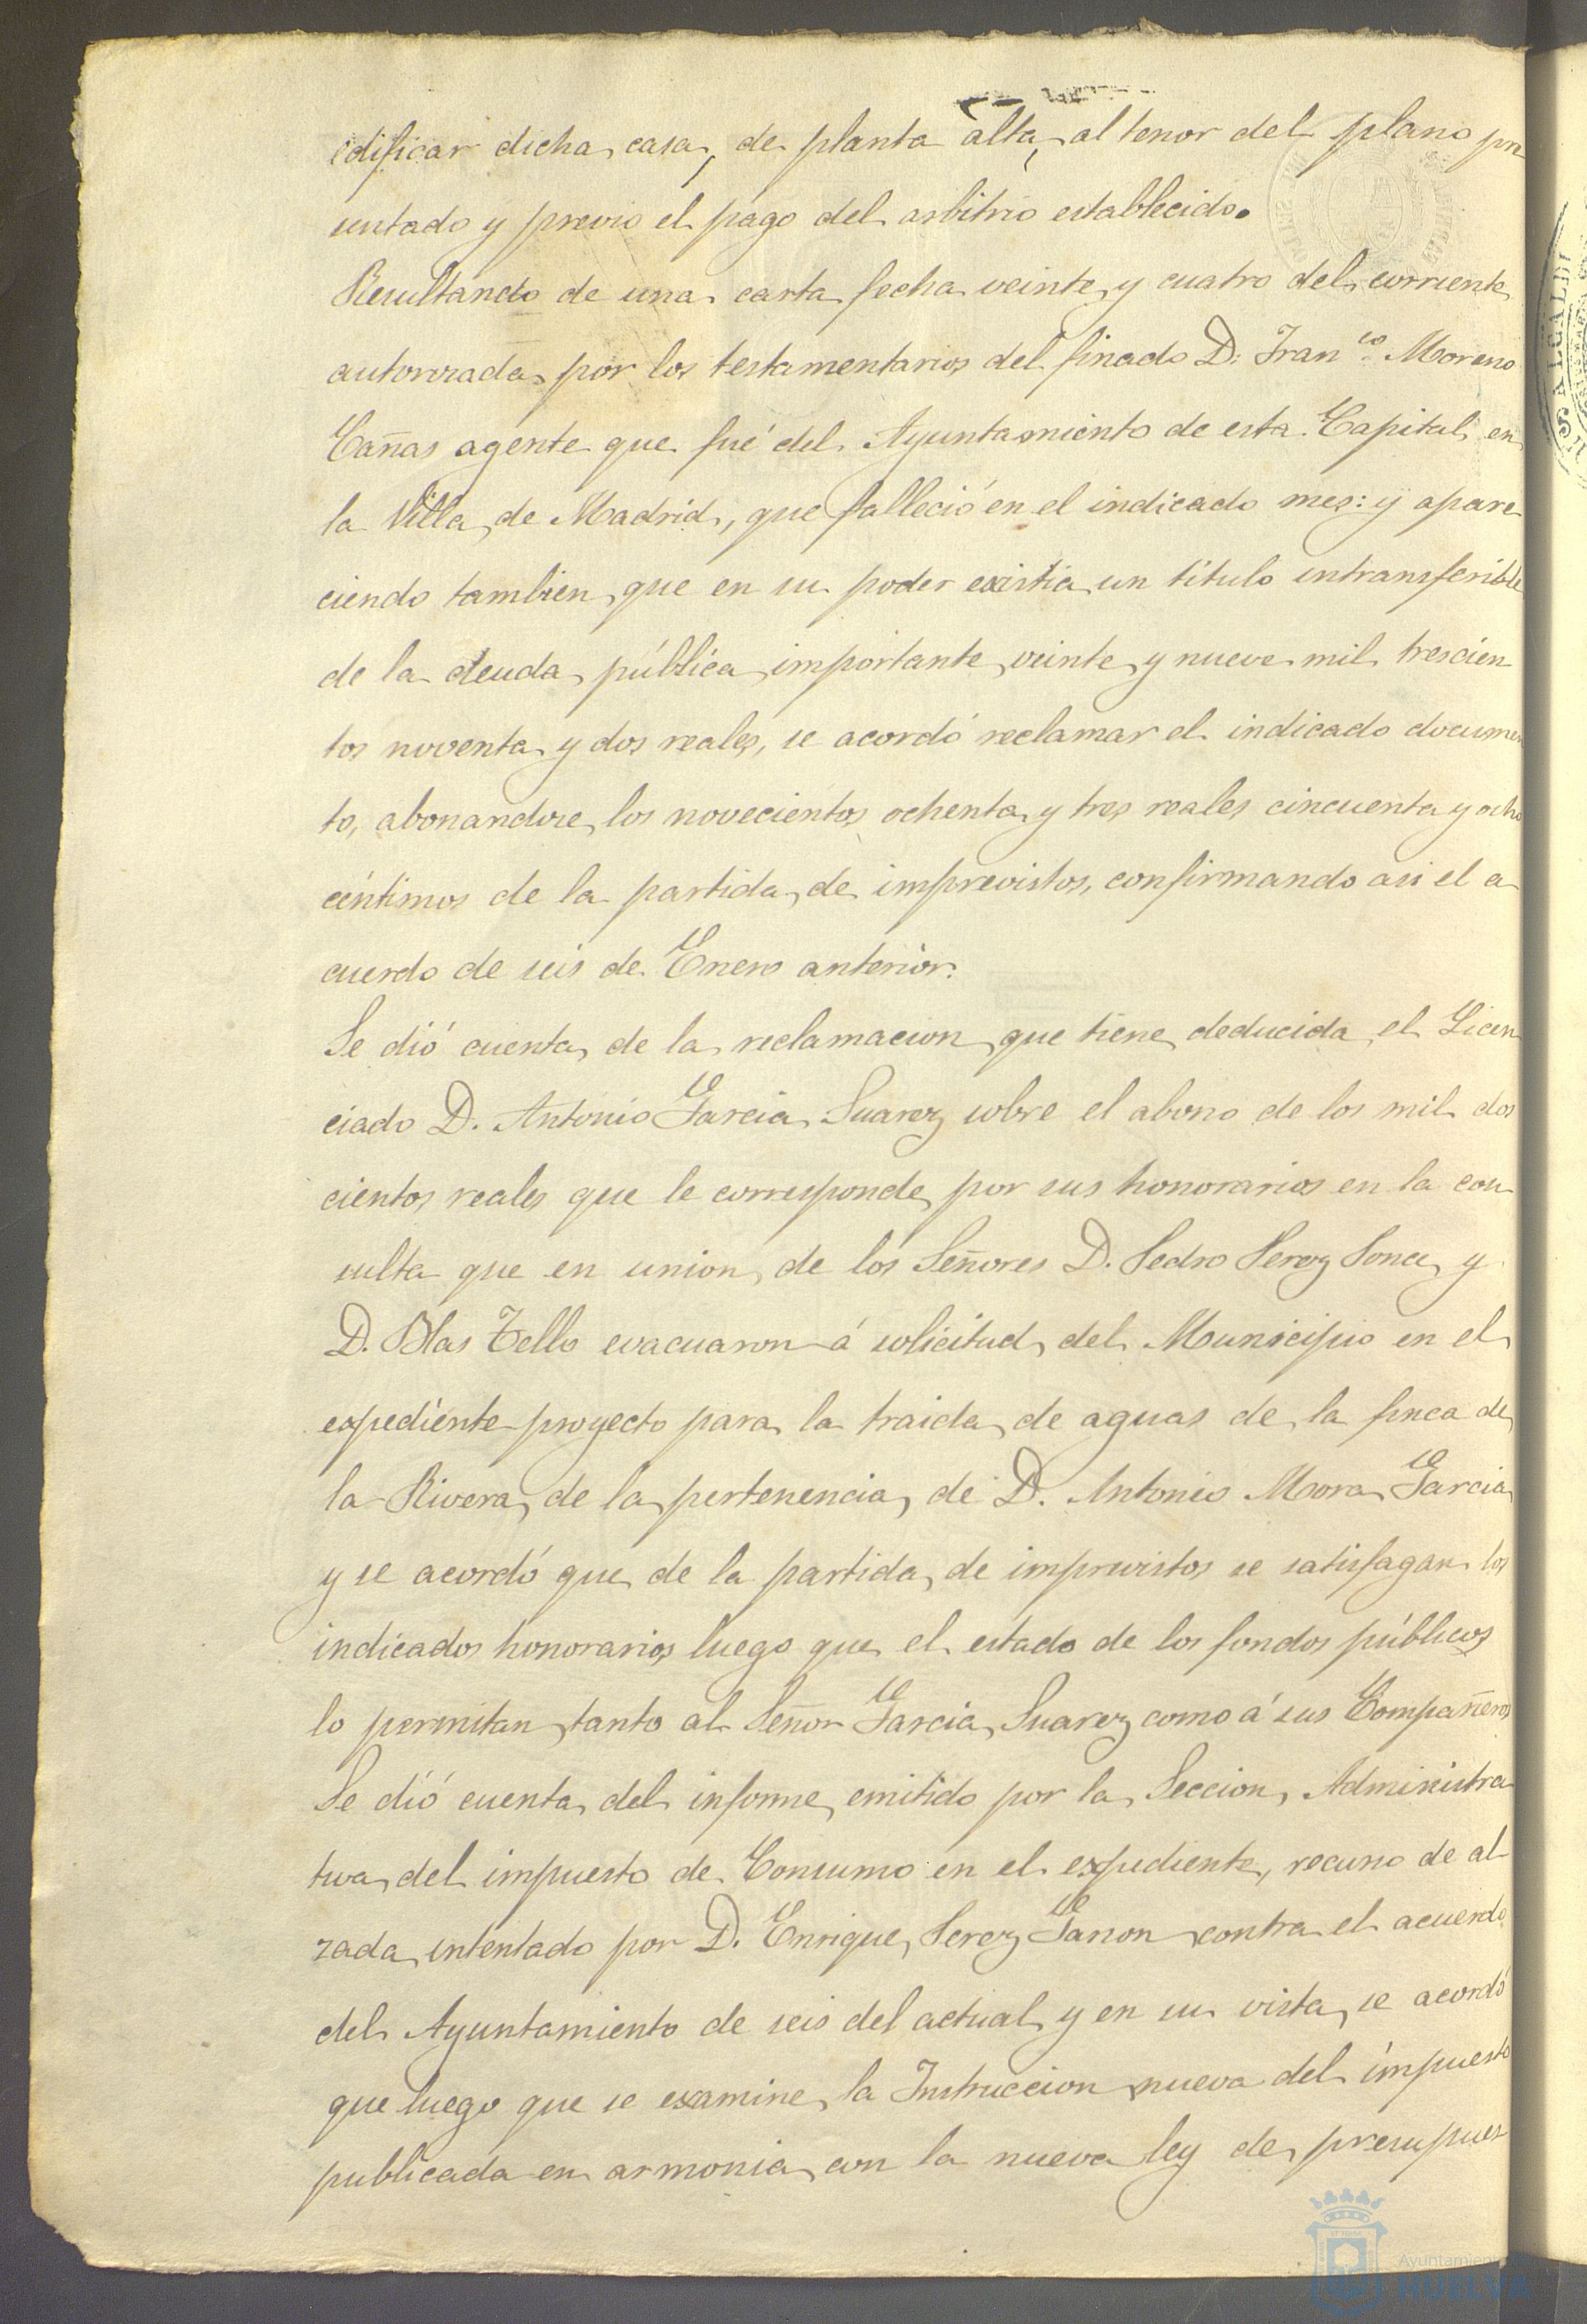 edificar dicha casa, de planta alta, al tenor del plano pre
sentado y previo el pago del arbitrio establecido.
Resultando de una carta fecha veinte y cuatro del corriente
autorizada por los testamentarios del finado D. Fran.co Moreno
Cañas agente que fué del Ayuntamiento de esta Capital en
la Villa de Madrid, que falleció en el indicado mes: y apare
ciendo tambien que en su poder existia un título intransferible
de la deuda pública importante veinte y nueve mil trescien
tos noventa y dos reales, se acordó reclamar el indicado documen
to, abonandose los novecientos ochenta y tres reales cincuenta y ocho
céntimos de la partida de imprevistos, confirmando asi el a
cuerdo de seis de Enero anterior.
Se dió cuenta de la reclamacion que tiene deducida el Licen
ciado D. Antonio Garcia Suarez sobre el abono de los mil dos
cientos reales que le corresponde por sus honorarios en la con
sulta que en union de los Señores D. Pedro Perez Ponce y
D. Blas Tello evacuaron á solicitud del Municipio en el
expediente proyecto para la traida de aguas de la finca de
la Rivera de la pertenencia de D. Antonio Mora Garcia
y se acordó que de la partida de imprevistos se satisfagan los
indicados honorarios luego que el estado de los fondos públicos
lo permitan tanto al Señor Garcia Suarez como á sus Compañeros
Se dió cuenta del informe emitido por la Seccion Administra
tiva del impuesto de Consumo en el expediente, recurso de al
zada intentado por D. Enrique Perez Ganon contra el acuerdo
del Ayuntamiento de seis del actual y en su vista se acordó
que luego que se examine la Instruccion nueva del impuesto
publicada en armonia con la nueva ley de presupues
ALCALDI
Ayuntamien
HUELVA